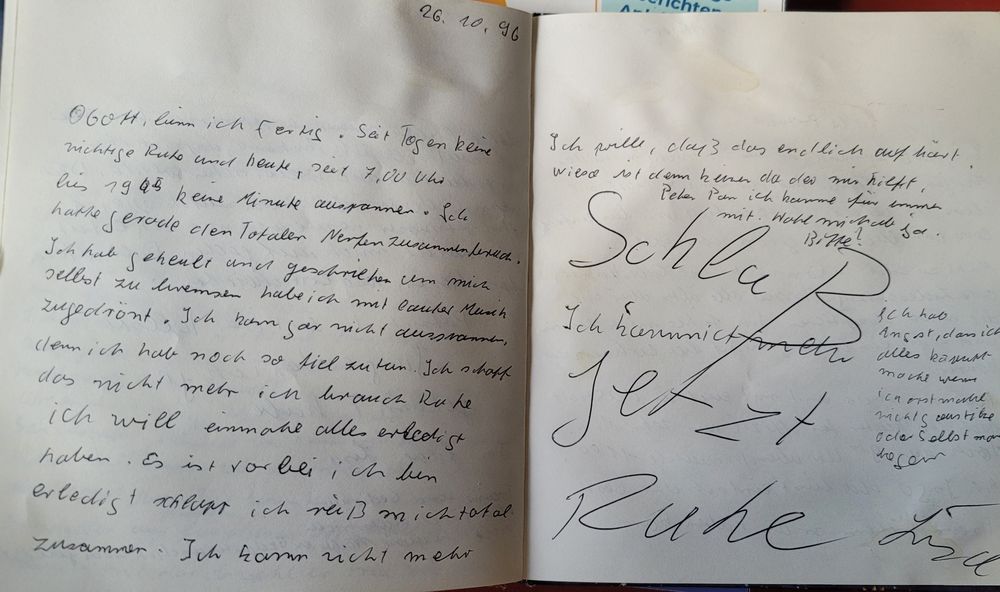 26.10.96
O Gott, binn ich fertig. Seit Tagen keine
richtige Ruhe und heute, seit 7,00 Uhr
bis 19 keine Minute ausspannen. Ich
hatte gerade den Totalen Nerfenzusammenbruch.
Ich hab geheult und geschriehen um mich
selbst zu bremsen habe ich mit lauter Musik
zugedrönt. Ich kann gar nicht ausspannen,
denn ich hab noch so fiel zutun. Ich schaff
das nicht mehr ich brauch Ruhe
ich will einmahl alles erledigt
haben. Es ist vorbei ich bin
erledigt schlapp ich reiß mich total
zusammen. Ich kann nicht mehr
Ich wille, daß das endlich auf hört.
wieso ist denn keiner da der mir hilft,
Peter Pan ich komme für immer
mit. Hohl mich ab ja.
Bitte!
Schluß
Ich kann nicht mehr
Jetzt
Ruhe
ich hab
Angst, das ich
alles kaputt
mache wenn
ich erst mahl
nicht
oder Selbst mor
Lisa